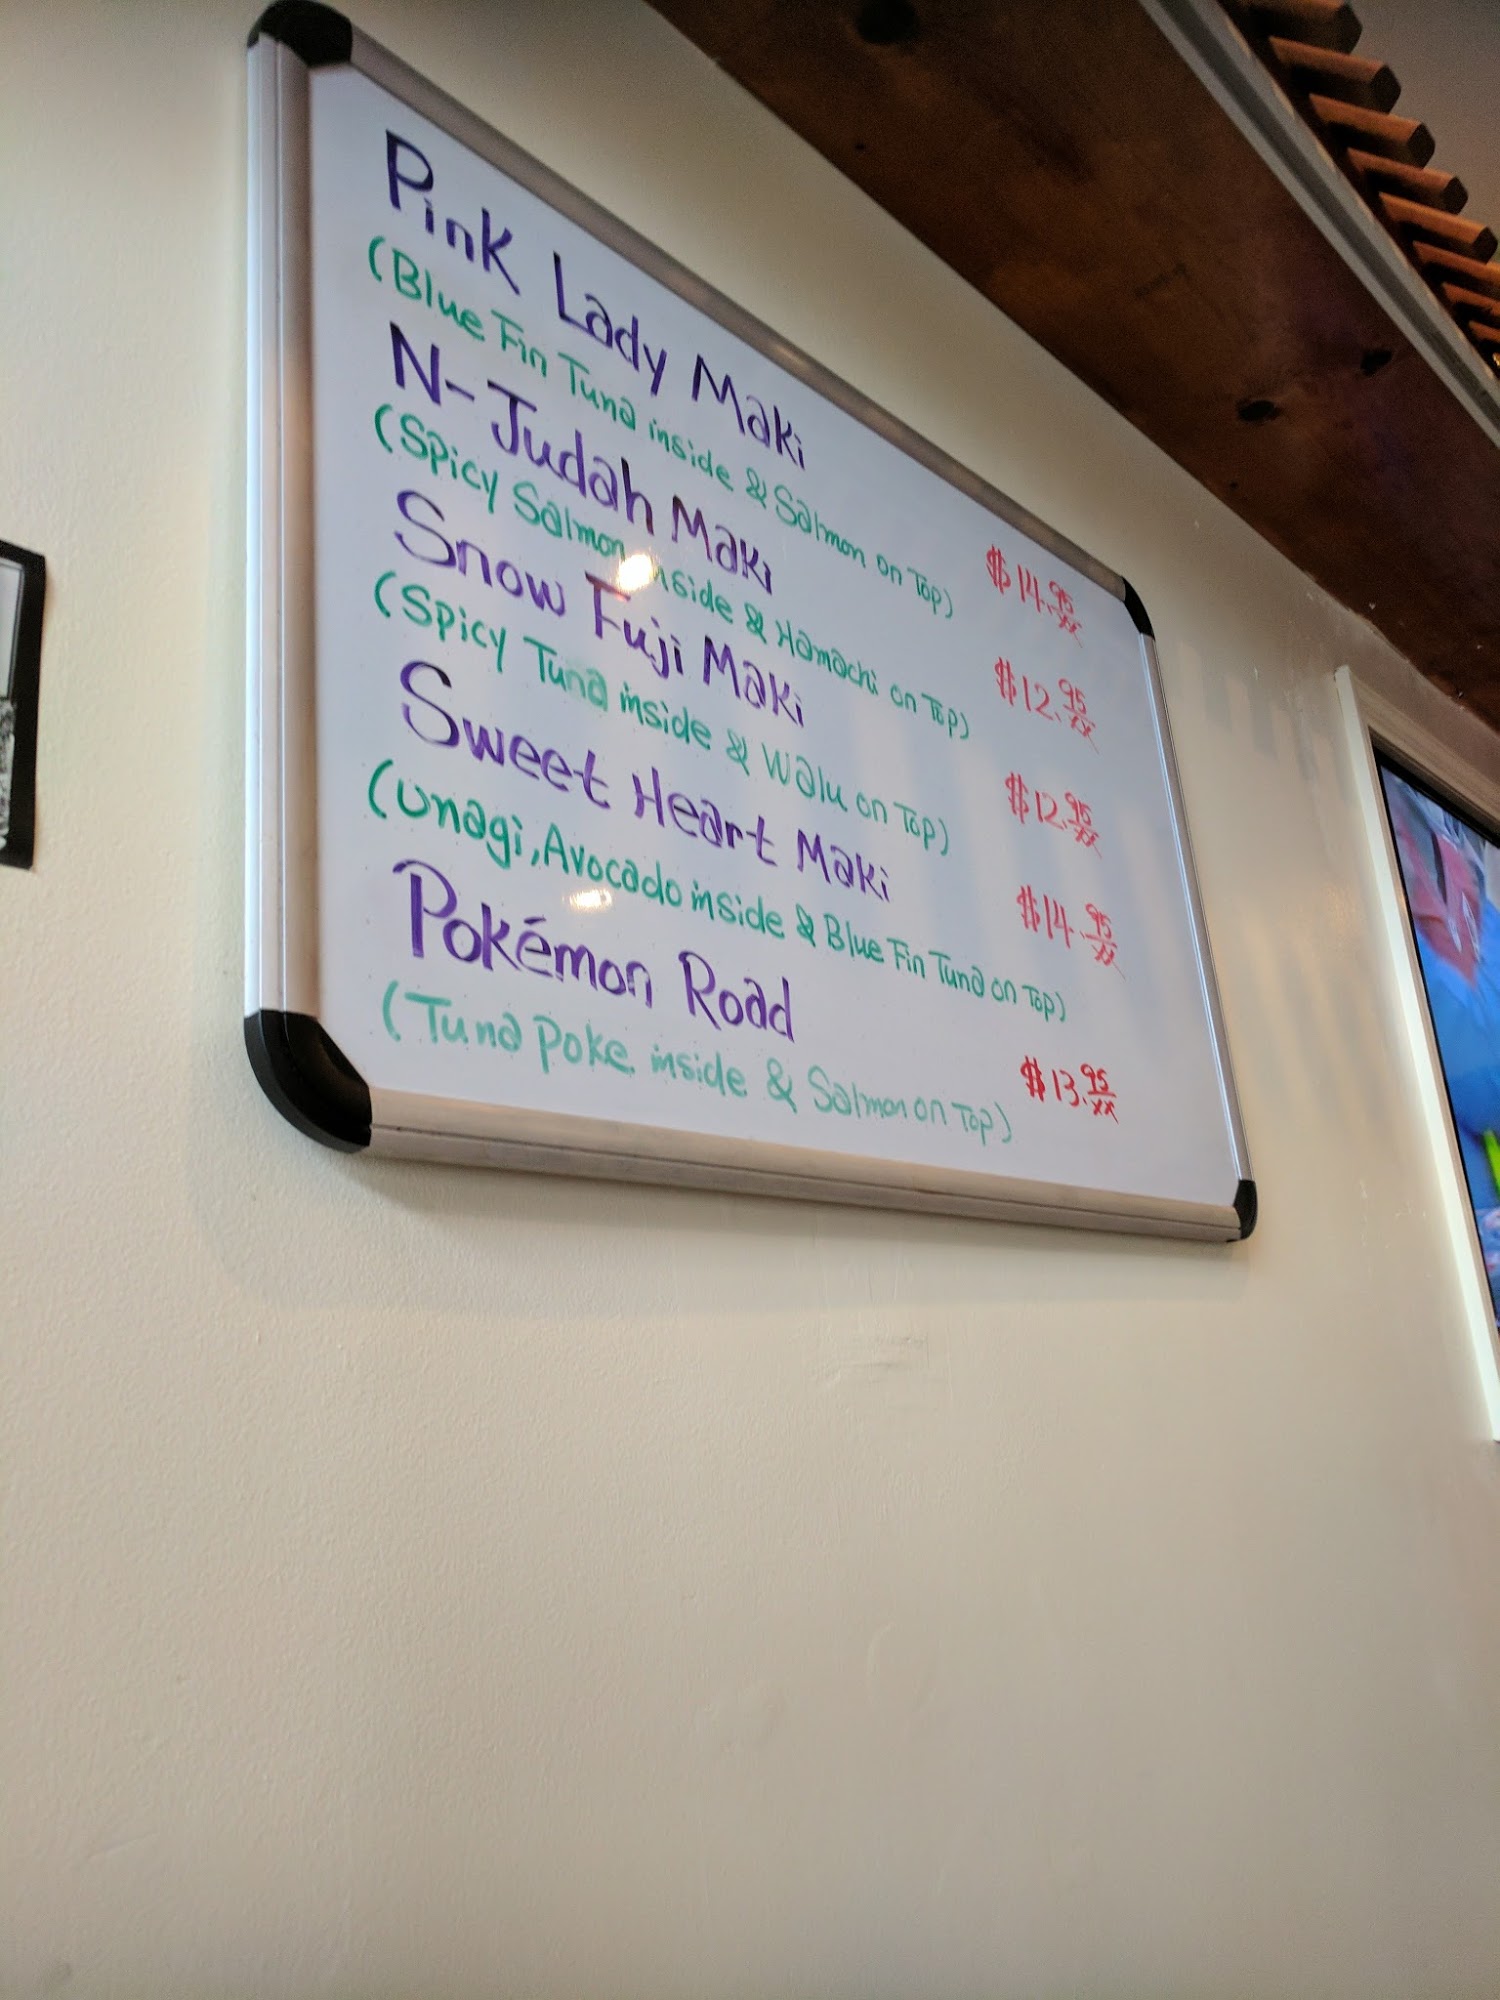 Pink Lady Maki
(Blue Fin Tuna inside & Salmon on Top) $14.95/xx
N-Judah Maki
(Spicy Salmon inside & Hamachi on Top) $12.95/xx
Snow Fuji Maki
(Spicy Tuna inside & Walu on Top) $12.95/xx
Sweet Heart Maki
(Unagi, Avocado inside & Blue Fin Tuna on Top) $14.95/xx
Pokémon Road
(Tuna Poke inside & Salmon on Top) $13.95/xx